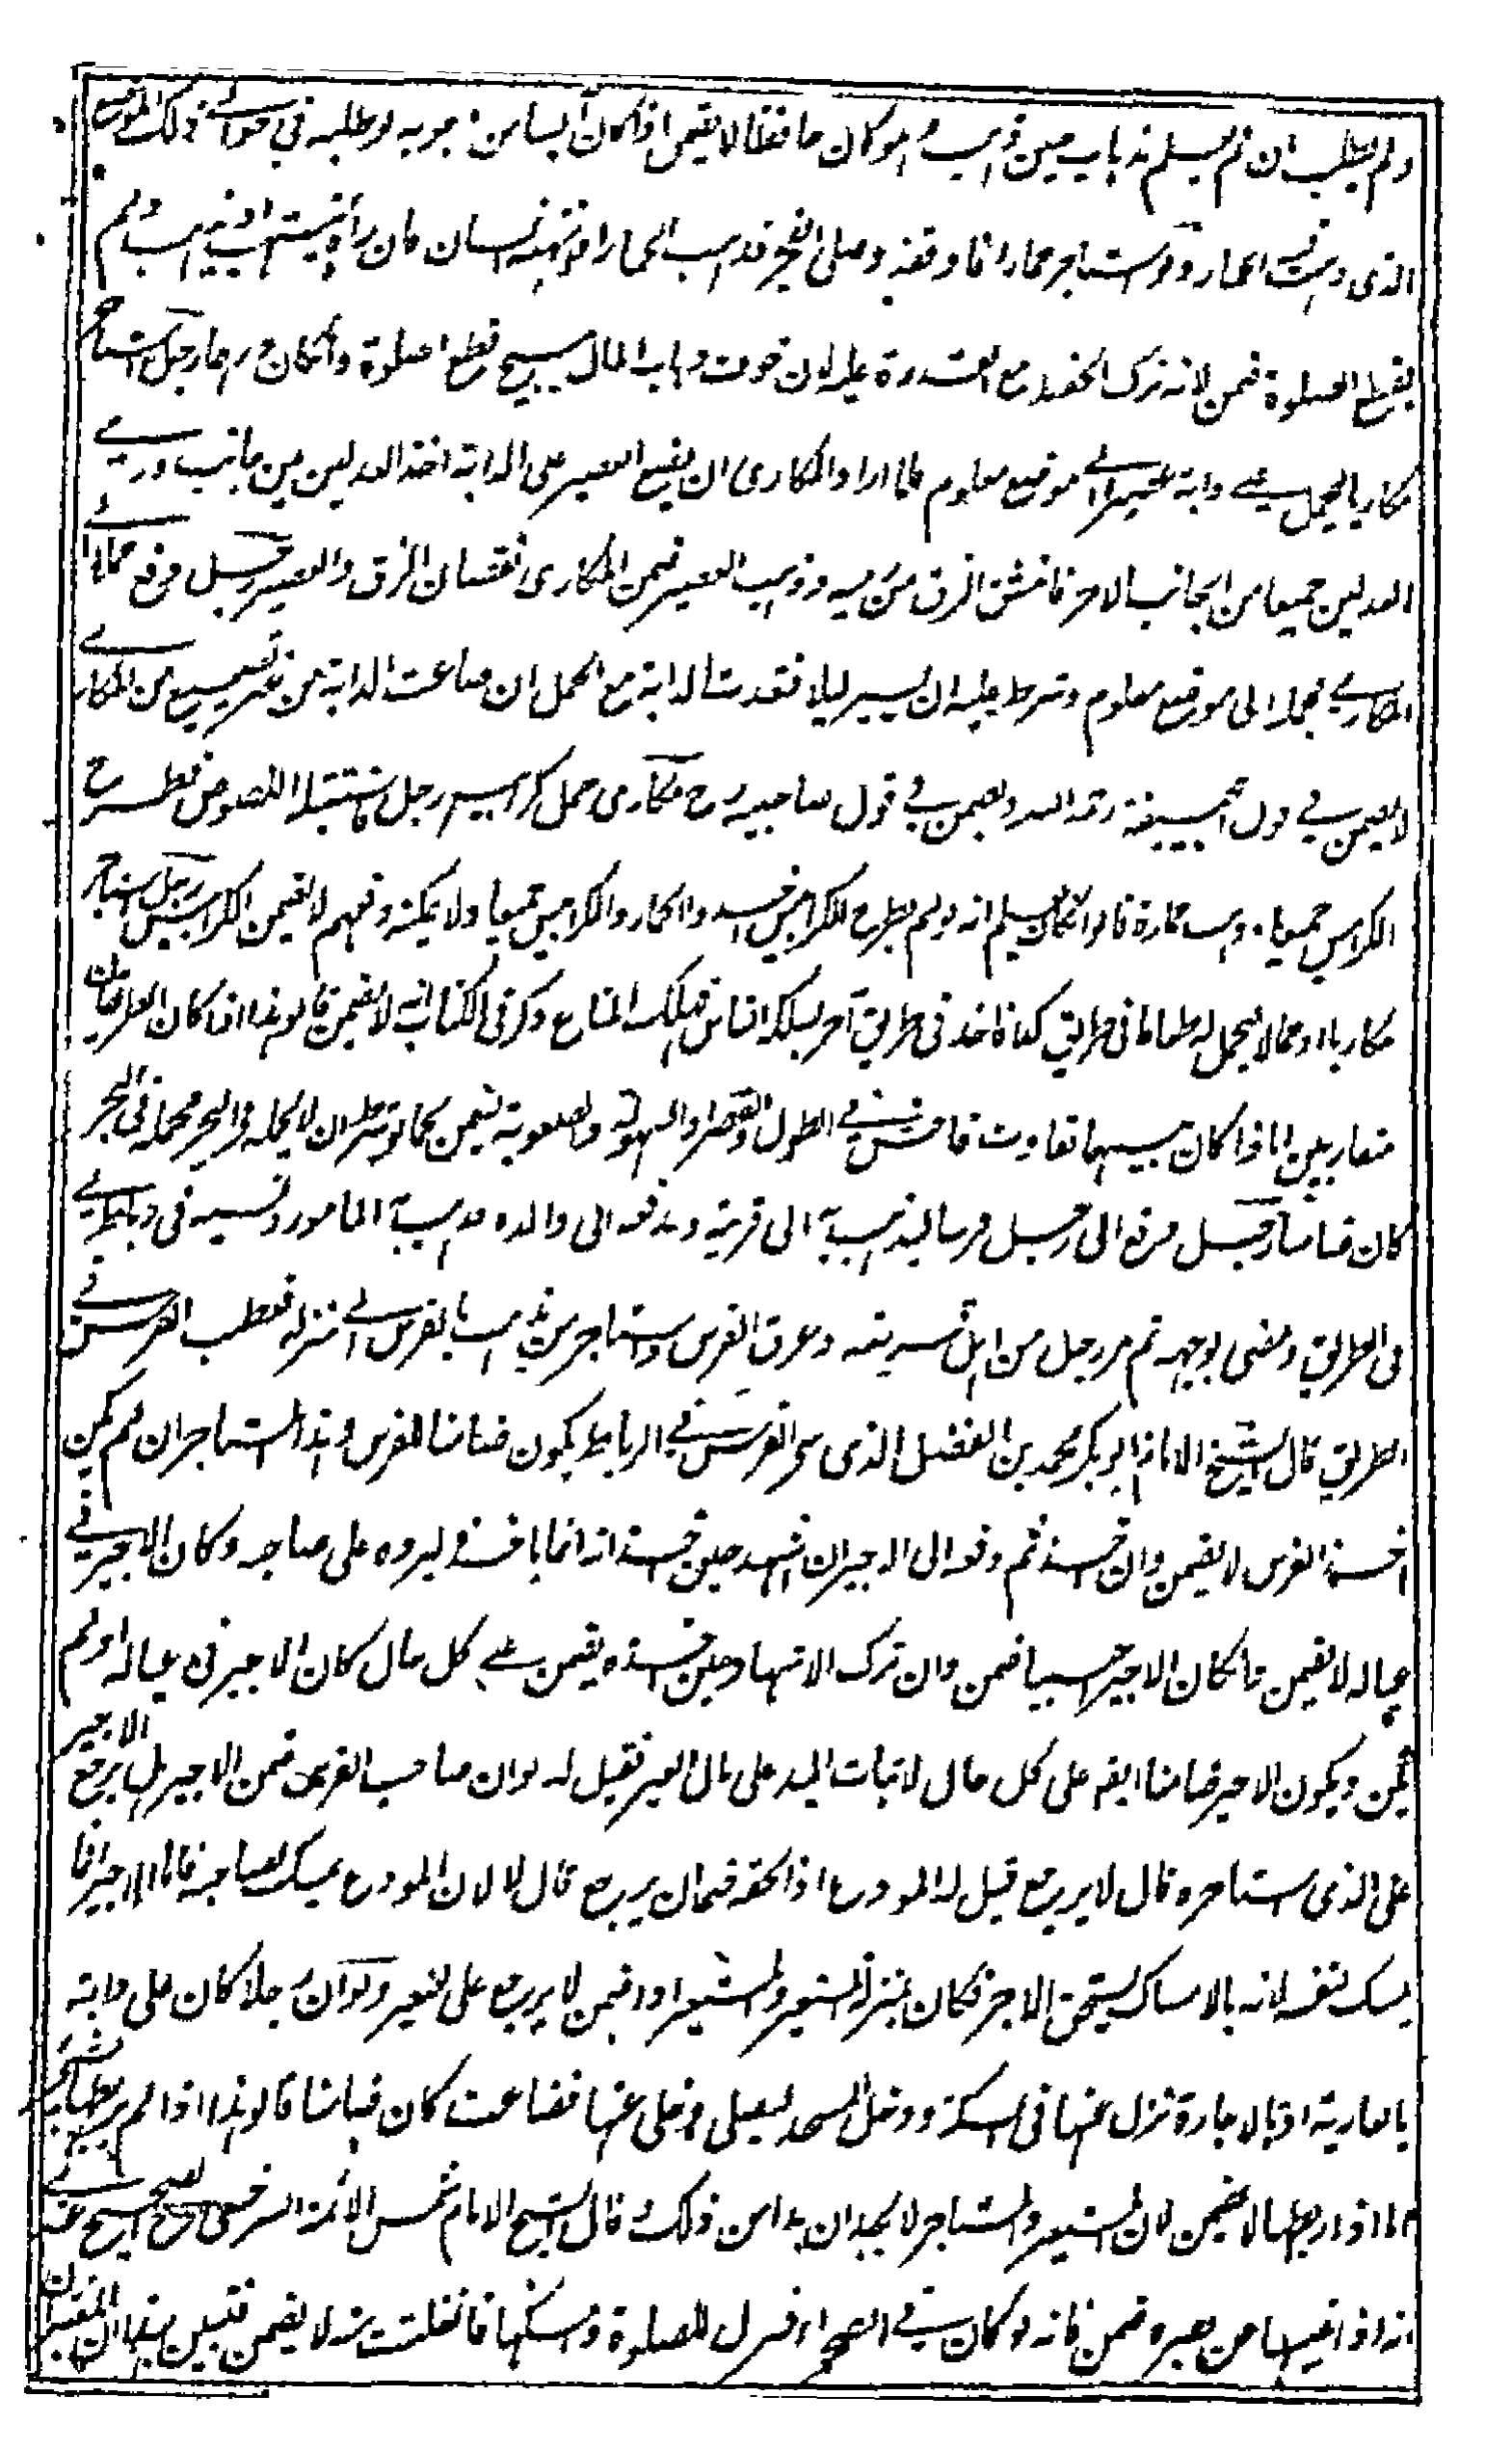 ولم يطلب ان لم يعلم بذهابه حين ذهب وهو كان حافظا لا يضمن اذا كان آيسا من وجوده لو طلبه في حوالي ذلك الموضع
الذي ذهب الحمار ولو استاجر حمارا فاوقفه وصلى الفجر فذهب الحمار او انتهبه انسان فان رآه ينتهب او يذهب ولم
يقطع الصلوة ضمن لانه ترك الحفظ مع القدرة عليه لان خوف ذهاب المال يبيح قطع الصلوة وان كان درهما رجل استاجر
مكاريا ليحمل على دابة عصيرا الى موضع معلوم فلما اراد المكاري ان يضع العصير على الدابة اخذ العدلين من جانب ورمى
العدلين جميعا من الجانب الاخر فانشق الزق من رميه وذهب العصير ضمن المكاري نقصان الزق والعصير رجل دفع حمارا الى
المكاري محملا الى موضع معلوم وشرط عليه ان يسير ليلا ففقدت الدابة مع الحمل ان ضاعت الدابة من غير تضييع من المكاري
لا يضمن في قول ابي حنيفة رحمه الله ويضمن في قول صاحبيه رح مكاري حمل كرابيس رجل فاستقبله اللصوص فطرح
الكرابيس جميعا وذهب بحماره قالوا ان كان يعلم انه لو لم يطرح الكرابيس اخذوا الحمار والكرابيس جميعا ولا يمكنه دفعهم لا يضمن الكرابيس رجل استاجر
مكاريا او حمالا ليحمل له طعاما في طريق كذا فاخذ في طريق آخر يسلكه الناس فهلك المتاع ذكر في الكتاب انه لا يضمن قالوا هذا اذا كان الطريقان
متقاربين اما اذا كان بينهما تفاوت فاحش في الطول والقصر او السهولة والصعوبة يضمن كما لو شرط ان لا يحمله في البحر فحمله في البحر
كان ضامنا رجل دفع الى رجل فرسا ليذهب به الى قرية ويدفعه الى والده فذهب به المامور وسيبه في رباط
في الطريق ومضى لوجهه ثم مر رجل من اهل قريته وعرف الفرس واستاجر من يذهب بالفرس الى منزله فعطب الفرس في
الطريق قال الشيخ الامام ابو بكر محمد بن الفضل الذي سيب الفرس في الرباط يكون ضامنا للفرس وهذا المستاجر ان لم يكن
اخذ الفرس لا يضمن وان اخذ ثم دفعه الى الاجير ان اشهد حين اخذه انه انما ياخذه ليرده على صاحبه وكان الاجير في
عياله لا يضمن فان كان الاجير اجنبيا ضمن وان ترك الاشهاد حين اخذه يضمن على كل حال كان الاجير في عياله او لم
يكن ويكون الاجير ضامنا ايضا على كل حال لاثبات اليد على مال الغير فقيل له لو ان صاحب الفرس ضمن الاجير هل يرجع الاجير
على الذي استاجره قال لا يرجع قيل له المودع اذا لحقه ضمان يرجع قال لا لان المودع يمسك لصاحبه فاما الاجير انما
يمسك لنفسه لانه بالامساك يستحق الاجر فكان بمنزلة المستعير والمستعير اذا ضمن لا يرجع على المعير ولو ان رجلا كان على دابة
بالعارية او بالاجارة فنزل عنها في السكة ودخل المسجد ليصلي فخلى عنها فضاعت كان ضامنا قالوا هذا اذا لم يربطها بشئ
اما اذا ربطها لا يضمن لان المستعير والمستاجر لا يجدان بدا من ذلك وقال الشيخ الامام شمس الائمة السرخسي رح الصحيح عندي
انه اذا غيبها عن بصره ضمن فانه لو كان في الصحراء فنزل للصلوة وامسكها فانفلتت منه لا يضمن فتبين بهذا ان المعتبر ان